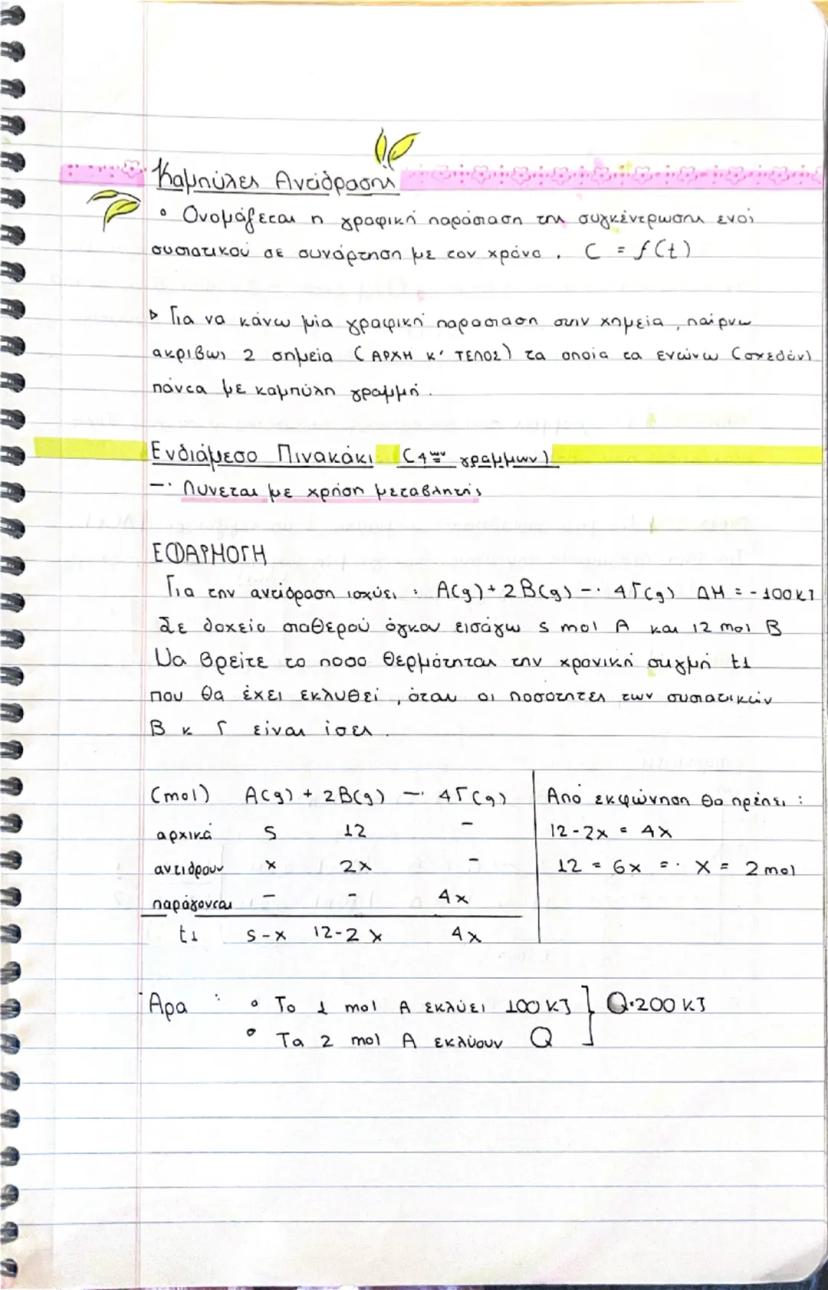 Καμπύλες Αντίδρασης
◦ Ονομάζεται η γραφική παράσταση της συγκέντρωσης ενός
συστατικού σε συνάρτηση με τον χρόνο. C = f(t)
▹ Για να κάνω μία γραφική παρασταση στην χημεία, παίρνω
ακριβως 2 σημεία (ΑΡΧΗ Κ' ΤΕΛΟΣ) τα οποία τα ενώνω (σχεδόν)
πάντα με καμπύλη γραμμή.
Ενδιάμεσο Πινακάκι (4ων γραμμων)
→ Λυνεται με χρήση μεταβλητής
ΕΦΑΡΜΟΓΗ
Για την αντίδραση ισχύει : A(g) + 2B(g) → 4Γ(g) ΔΗ = -100KJ
Σε δοχείο σταθερού όγκου εισάγω 5 mol A και 12 mol B
Να βρείτε το ποσο θερμότητας την χρονική στιγμή t1
που θα έχει εκλυθεί, όταν οι ποσότητες των συστατικών
Β κ Γ είναι ίσες.
(mol) A(g) + 2B(g) → 4Γ(g) Από εκφώνηση θα πρέπει :
αρχικά 5 12 - 12-2x = 4x
αντιδρουν x 2x - 12 = 6x => x = 2 mol
παράγονται - - 4x
t1 5-x 12-2x 4x
Άρα : ◦ Το 1 mol A εκλύει 100 KJ ] Q=200 KJ
◦ Τα 2 mol A εκλύουν Q